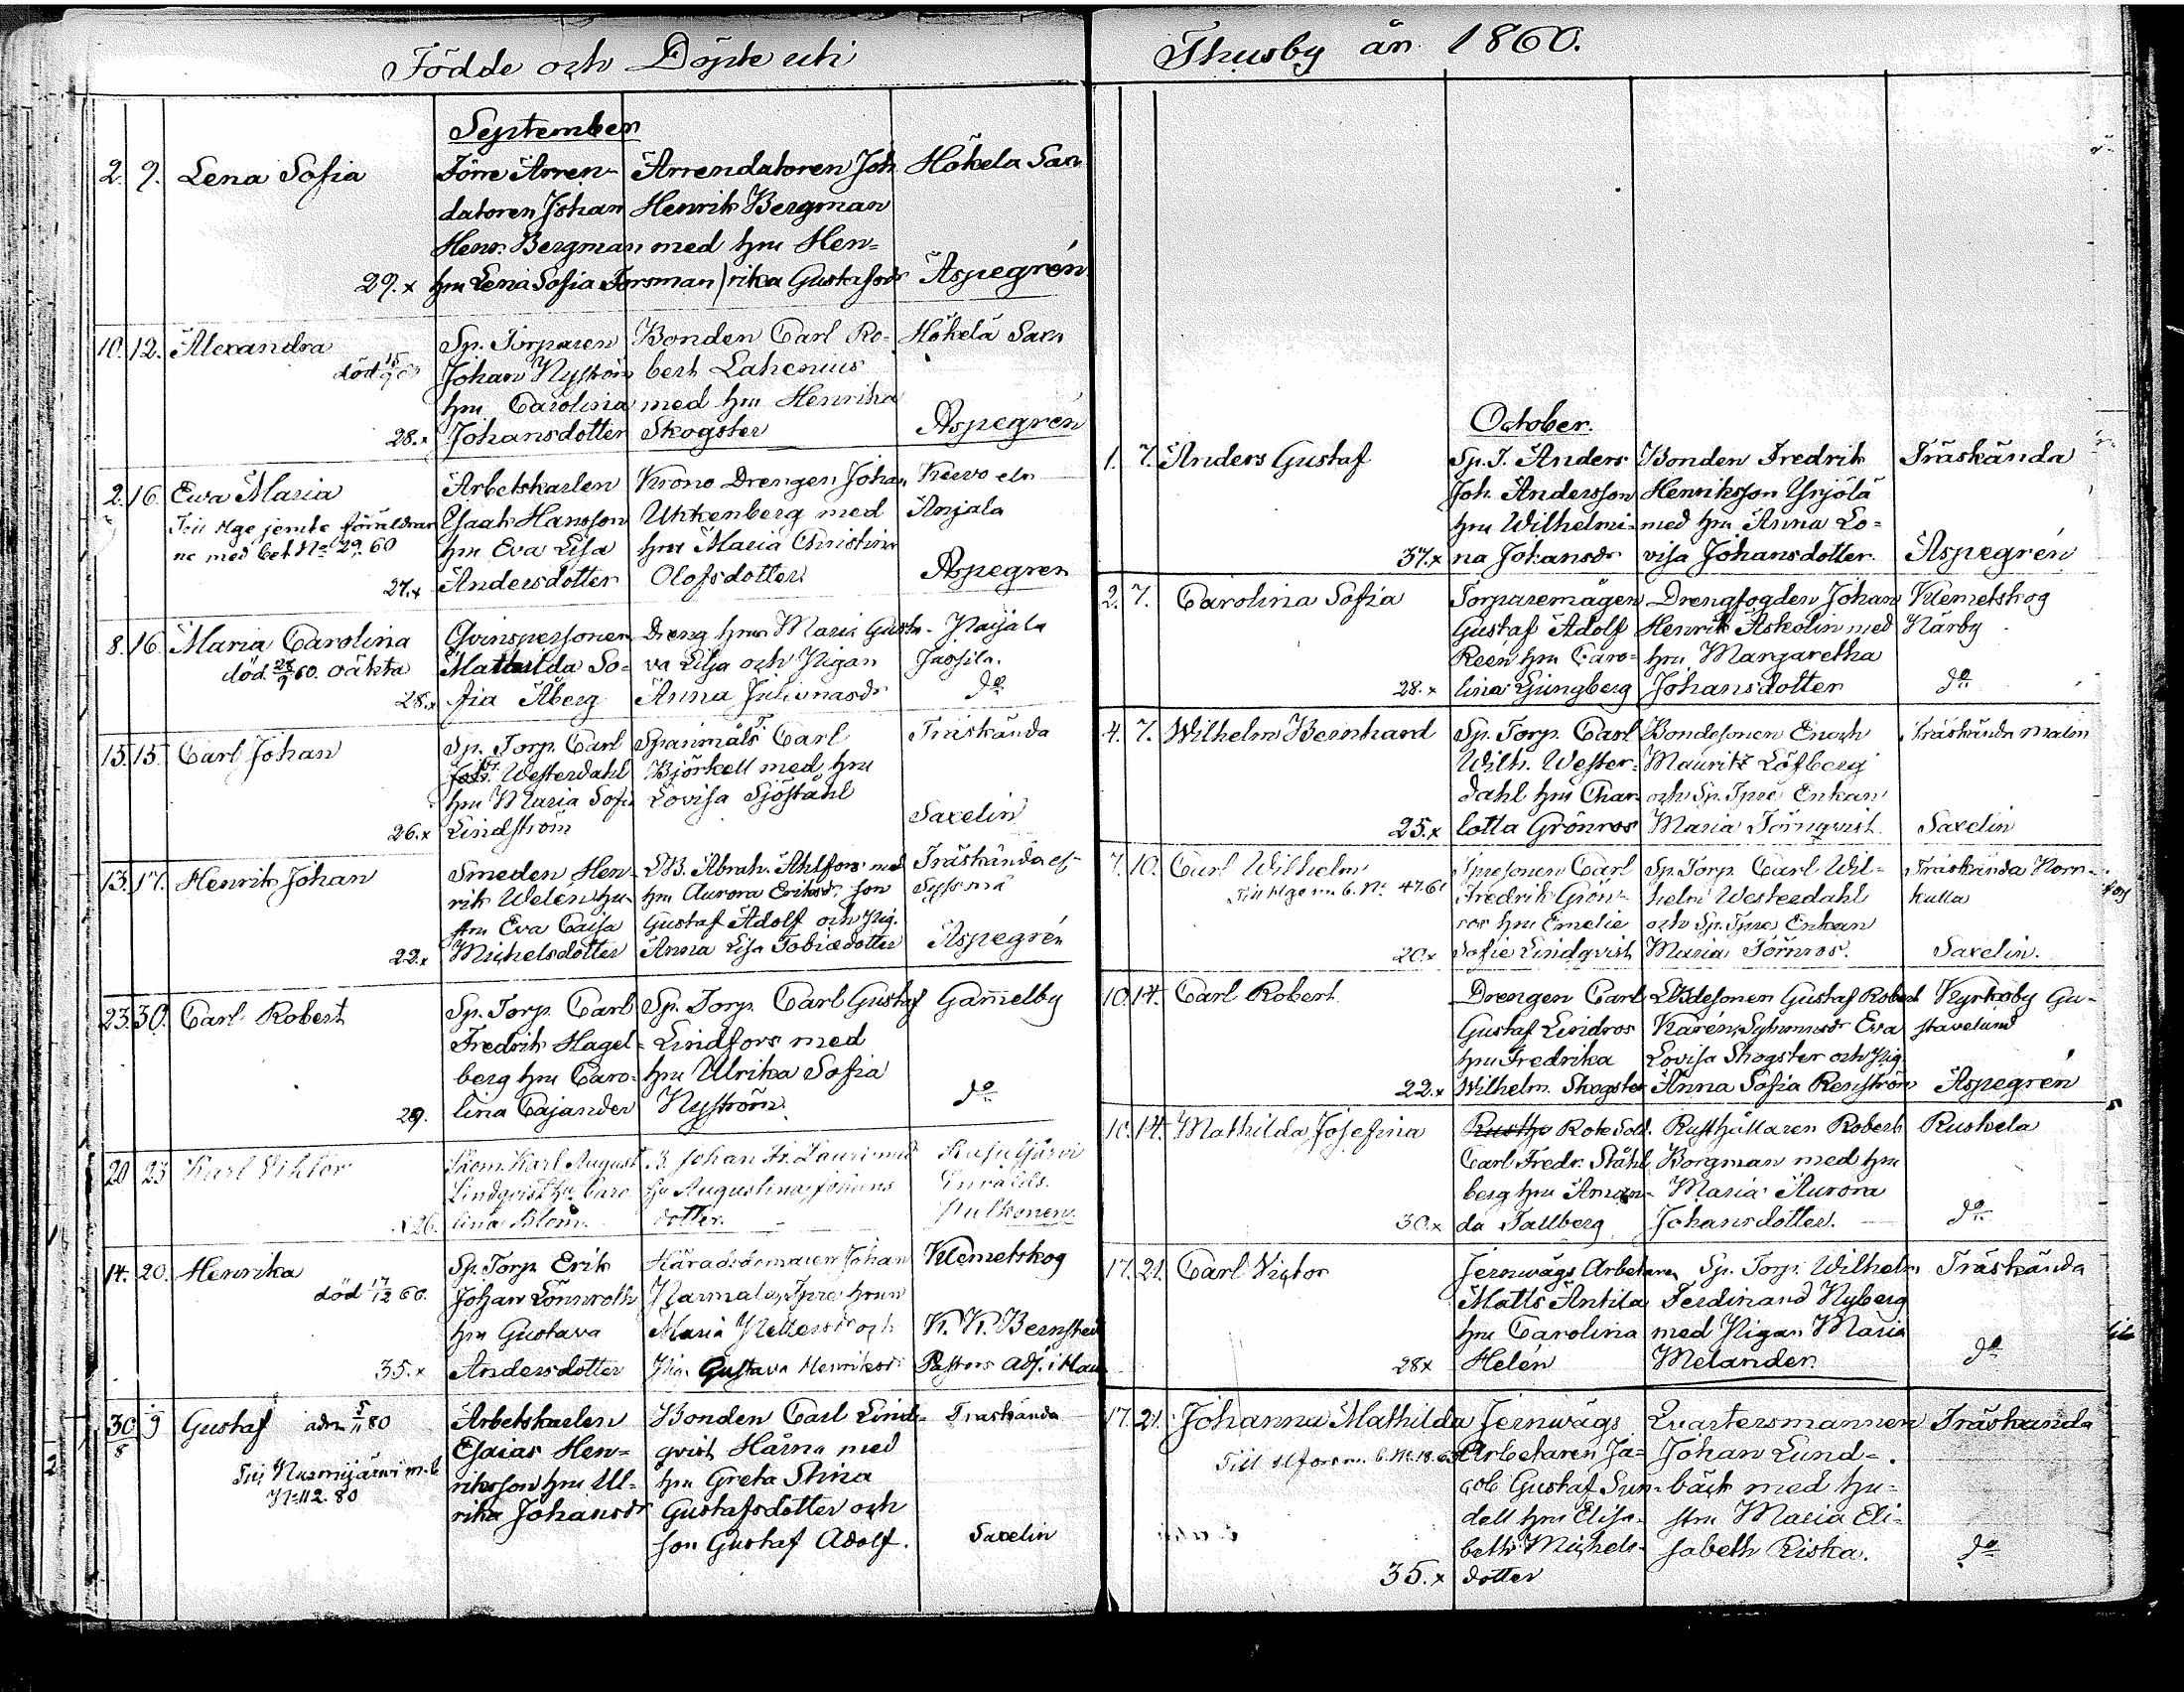 Födde och Döpte uti
Thusby år 1860.
September
2. 9. Lena Sofia
Förre Arren-
datoren Johan
Henr. Bergman
29. x hru Lena Sofia Forsman
Arrendatoren Joh.
Henrik Bergman
med hru Hen-
rika Gustafsdr
Hökela Sam
Aspegrén
10. 12. Alexandra
död
Sp. Torparen
Johan Nyström
hru Carolina
28. x Johansdotter
Bonden Carl Ro-
bert Lahenius
med hru Henrika
Skogster
Hökelä Sam
Aspegrén
2. 16. Ewa Maria
föräldrar
ne med bet. No 29. 60
Arbetskarlen
Esaak Hansson
hru Eva Lisa
27. x Andersdotter
Krono Drengen Johan
Ukkenberg med
hru Maria Christina
Olofsdotter.
Kervo
Anjala
Aspegren
8. 16. Maria Carolina
död 28/9 60. oäkta
Qvinspersonen
Mathilda So-
28. x fia Åberg
Dreng hrun Maria Gusta-
va Lisa och Pigan
Anna Julianasdr
Paijala
Do
13. 15. Carl Johan
Sp. Torp. Carl
Westerdahl
hru Maria Sofia
26. x Lindström
Spanmåls T. Carl
Björkell med hru
Lovisa Sjöståhl
Träskända
Saxelin
13. 17. Henrik Johan
Smeden Hen-
rik Welén hu-
stru Eva Caisa
22. x Michelsdotter
LB. Abrah. Ahlfors med
hru Aurora Eriksdr son
Gustaf Adolf och Pig.
Anna Lisa Tobiædotter
Träskända
Aspegrén
23. 30. Carl Robert
Sp. Torp. Carl
Fredrik Hagel-
berg hru Caro-
29. lina Cajander
Sp. Torp. Carl Gustaf
Lindfors med
hru Ulrika Sofia
Nyström.
Gammelby
Do
20 23 Karl Viktor
Skom. Karl August
Lindqvist hu Caro
x 26. lina Blom.
B. Johan Fr. Lauri med
hu Augustina Johans
dotter.
Rusutjärvi
Pulkonen.
14. 20. Henrika
död 17/12 60.
Sp. Torp. Erik
Johan Lönnroth
hru Gustava
35. x Andersdotter
Häradsdomaren Johan
Tpre hrun
Maria
Pig. Gustava Henriksdr
Klemetskog
K. K. Bernsted
Pastors Adj. i Mau
30/8 9 Gustaf
Till Nurmijärvi m. b.
No 112. 80
Arbetskarlen
Esaias Hen-
riksson hru Ul-
rika Johansdr
Bonden Carl Lind-
qvist Härna med
hru Greta Stina
Gustafsdotter och
son Gustaf Adolf.
Träskända
Saxelin
October.
1. 7. Anders Gustaf
Sp. T. Anders
Joh. Andersson
hru Wilhelmi-
37. x na Johansdr
Bonden Fredrik
Henriksson Yrjölä
med hru Anna Lo-
visa Johansdotter.
Träskända
Aspegrén
2. 7. Carolina Sofia
Torparemågen
Gustaf Adolf
Reen hru Caro-
28. x lina Ljungberg
Drengfogden Johan
Henrik Askolin med
hru Margaretha
Johansdotter
Klemetskog
Närby
Do
4. 7. Wilhelm Bernhard
Sp. Torp. Carl
Wilh. Wester-
dahl hru Char-
25. x lotta Grönros
Bondesonen Enoch
Mauritz Löfberg
och Sp. Tpre Enkan
Maria Törnqvist.
Träskända malm
Saxelin
7. 10. Carl Wilhelm
Tpresonen Carl
Fredrik Grön-
ros hru Emelie
20. x Sofie Lindqvist
Sp. Torp. Carl Wil-
helm Westerdahl
och Sp. Tpre Enkan
Maria Törnros.
Träskända Korn-
kulla
Saxelin.
10. 14. Carl Robert
Drengen Carl
Gustaf Lindros
hru Fredrika
22. x Wilhelm. Skogster
LBdesonen Gustaf Robert
Karén, Eva
Lovisa Skogster och Pig.
Anna Sofia Renström
Kyrkoby Gu-
stavelund
Aspegrén
10. 14. Mathilda Josefina
Rusth. Rote Sold.
Carl Fredr. Ståhl-
berg hru Aman-
30. x da Tallberg
Rusthållaren Robert
Borgman med hru
Maria Aurora
Johansdotter.
Ruskela
Do
17. 21. Carl Victor
Jernvägs Arbetaren
Matts Antila
hru Carolina
28 x Helén
Sp. Torp. Wilhelm
Ferdinand Nyberg
med Pigan Maria
Melander.
Träskända
Do
17. 21. Johanna Mathilda
Jernvägs
Arbetaren Ja-
cob Gustaf Sun-
dell hru Elisa-
beth Michels-
35. x dotter
Qvartersmannen
Johan Lund-
bäck med hu-
stru Maria Eli-
sabeth Riska.
Träskända
Do